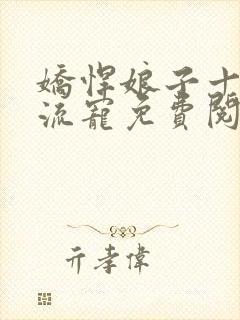 嬌悍娘子十
流寵免費閱
亓孝偉